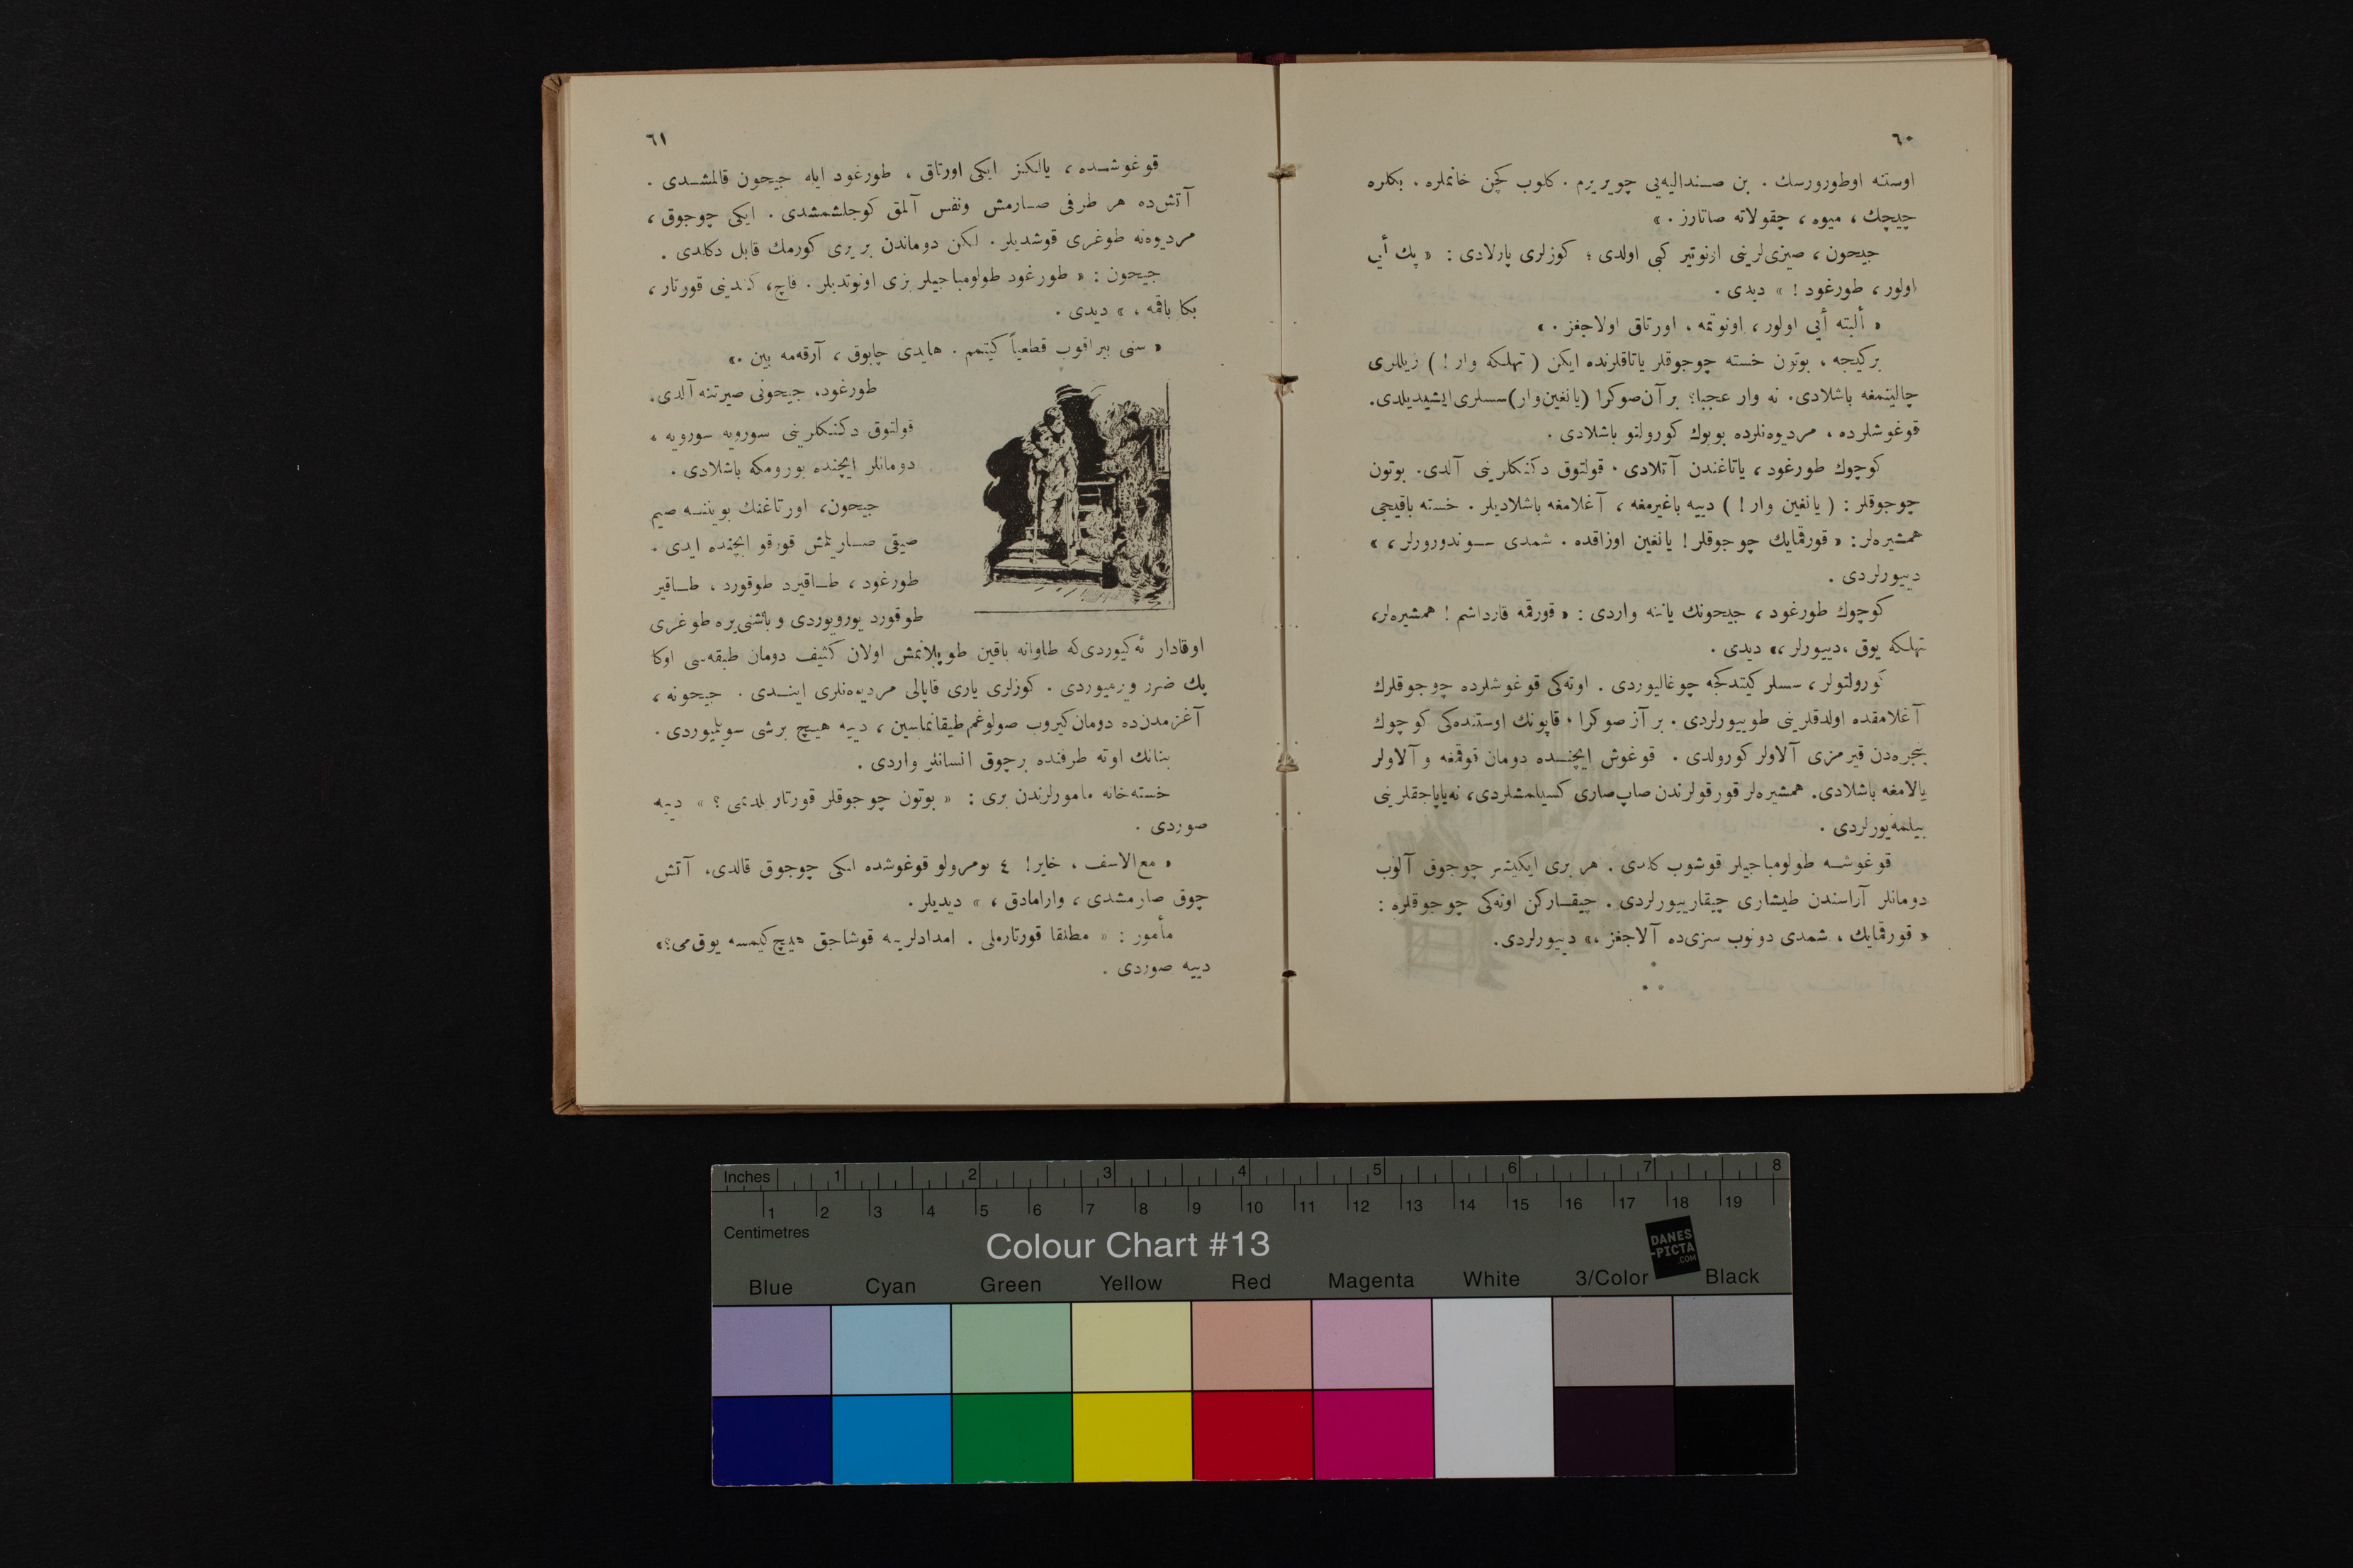 ٦٠
اوستنه اوطورورسك . بن صنداليه‌يى چويريرم . كلوب كچن خانملره ، بكلره
چيچك ، ميوه ، چقولاته صاتارز . »
جيحون ، صيزى‌لرينى اونوتير كبى اولدى ؛ كوزلرى پارلادى : « پك أيى
اولور ، طورغود ! » ديدى .
« ألبته أيى اولور ، اونوتمه ، اورتاق اولاجغز . »
بركيجه ، بوتون خسته چوجوقلر ياتاقلرنده ايكن ( تهلكه وار ! ) زيللرى
چالينمغه باشلادى . نه وار عجبا؟ بر آن صوكرا (يانغين وار) سسلرى ايشيديلدى .
قوغوشلرده ، مرديوه‌نلرده بويوك كورولتو باشلادى .
كوچوك طورغود ، ياتاغندن آتلادى . قولتوق دكنكلرينى آلدى . بوتون
چوجوقلر : ( يانغين وار ! ) دييه باغيرمغه ، آغلامغه باشلاديلر . خسته باقيجى
همشيره‌لر : « قورقمايك چوجوقلر ! يانغين اوزاقده . شمدى سوندورورلر ، »
دييورلردى .
كوچوك طورغود ، جيحونك ياننه واردى : « قورقمه قارداشم ! همشيره‌لر،
تهلكه يوق ، دييورلر ،» ديدى .
كورولتولر ، سسلر كيتدكجه چوغاليوردى . اوته‌كى قوغوشلرده چوجوقلرك
آغلامقده اولدقلرينى طويييورلردى . بر آز صوكرا ، قاپونك اوستنده‌كى كوچوك
پنجره‌دن قيرمزى آلاولر كورولدى . قوغوش ايچنده دومان قوقمغه و آلاولر
يالامغه باشلادى . همشيره‌لر قورقولرندن صاپ‌صارى كسيلمشلردى ، نه‌ياپاجقلرينى
بيلمه‌يورلردى .
قوغوشه طولومباجيلر قوشوب كلدى . هر برى ايكيشر چوجوق آلوب
دومانلر آراسندن طيشارى چيقارييورلردى . چيقاركن اوته‌كى چوجوقلره :
« قورقمايك ، شمدى دونوب سزى‌ده آلاجغز ،» دييورلردى .
٦١
قوغوشده ، يالكز ايكى اورتاق ، طورغود ايله جيحون قالمشدى .
آتش‌ده هر طرفى صارمش ونفس آلمق كوجلشمشدى . ايكى چوجوق ،
مرديوه‌نه طوغرى قوشديلر . لكن دوماندن بر يرى كورمك قابل دكلدى .
جيحون : « طورغود طولومباجيلر بزى اونوتديلر . قاچ ، كنديني قورتار ،
بكا باقمه ، » ديدى .
« سنى بيراقوب قطعياً كيتمم . هايدى چابوق ، آرقه‌مه بين .»
طورغود ، جيحونى صيرتنه آلدى .
قولتوق دكنكلرينى سورويه سورويه ،
دومانلر ايچنده يورومكه باشلادى .
جيحون ، اورتاغنك بويننه صيم
صيقى صاريلمش قورقو ايچنده ايدى .
طورغود ، طاقيرد طوقورد ، طاقير
طوقورد يورويوردى و باشنى يره طوغرى
اوقادار ئه‌كيوردى‌كه طاوانه ياقين طوپلانمش اولان كثيف دومان طبقه‌سى اوكا
پك ضرر ويرميوردى . كوزلرى يارى قاپالى مرديوه‌نلرى ايندى . جيحونه ،
آغزمدن‌ده دومان كيروب صولوغم طيقانماسين ، دييه هيچ برشى سويلميوردى .
بنانك اوته طرفنده برچوق انسانلر واردى .
خسته‌خانه مامورلرندن برى : « بوتون چوجوقلر قورتاريلديمى ؟ » دييه
صوردى .
« مع‌الاسف ، خاير! ٤ نومرولو قوغوشده ايكى چوجوق قالدى . آتش
چوق صارمشدى ، وارامادق ، » ديديلر .
مأمور : « مطلقا قورتارملى . امدادلرينه قوشاجق هيچ كيمسه يوق‌مى؟»
دييه صوردى .
Inches 1 2 3 4 5 6 7 8
1 2 3 4 5 6 7 8 9 10 11 12 13 14 15 16 17 18 19
Centimetres
Colour Chart #13
DANES
-PICTA
.COM
Blue Cyan Green Yellow Red Magenta White 3/Color Black